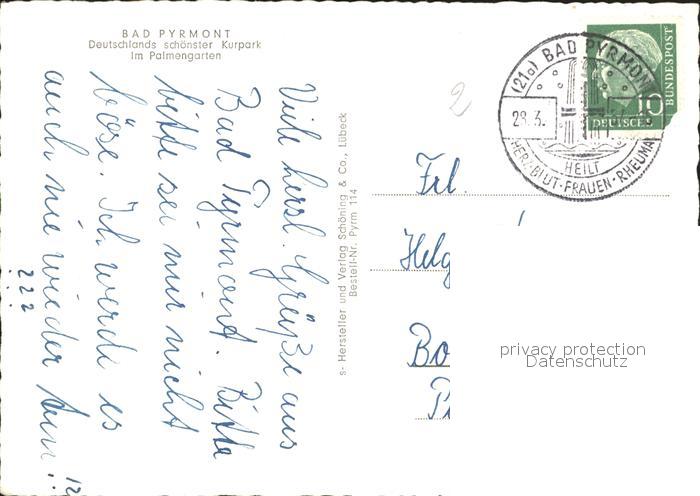 BAD PYRMONT
Deutschlands schönster Kurpark
Im Palmengarten
Viele herzl. Grüße aus
Bad Pyrmont. Bitte
bitte sei mir nicht
böse. Ich werde es
auch nie wieder tun!
? ? ?
12
s- Hersteller und Verlag Schöning & Co., Lübeck
Bestell-Nr. Pyrm 114
2
(21a) BAD PYRMONT
28.3.
HEILT
HERZ-BLUT-FRAUEN-RHEUMA
10
DEUTSCHE
BUNDESPOST
Frl.
Helg
Bo
privacy protection
Datenschutz